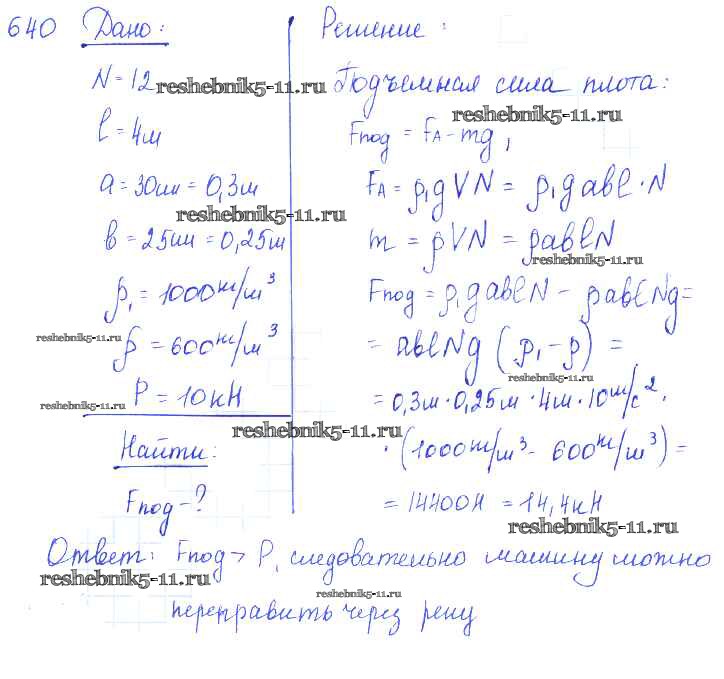 640 Дано:
N = 12
l = 4м
a = 30см = 0,3м
b = 25см = 0,25м
ρ₁ = 1000кг/м³
ρ = 600кг/м³
P = 10кН
Найти:
Fпод - ?
Решение:
Подъемная сила плота:
Fпод = FA - mg,
FA = ρ₁gVN = ρ₁gabl·N
m = ρVN = ρablN
Fпод = ρ₁gablN - ρablNg =
= ablNg (ρ₁ - ρ) =
= 0,3м·0,25м·4м·10м/с²·
·(1000кг/м³ - 600кг/м³) =
= 14400Н = 14,4кН
Ответ: Fпод > P, следовательно машину можно
переправить через реку
reshebnik5-11.ru
reshebnik5-11.ru
reshebnik5-11.ru
reshebnik5-11.ru
reshebnik5-11.ru
reshebnik5-11.ru
reshebnik5-11.ru
reshebnik5-11.ru
reshebnik5-11.ru
reshebnik5-11.ru
reshebnik5-11.ru